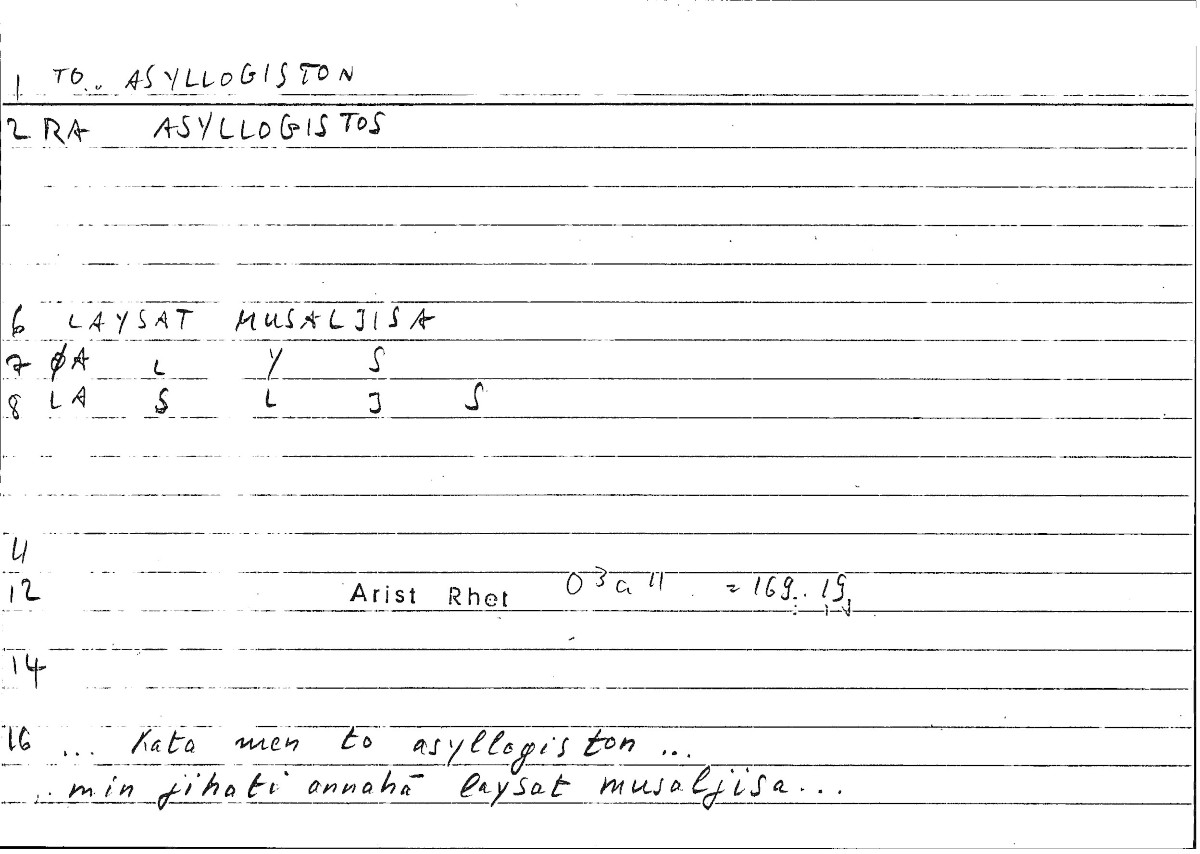 1 TO.. ASYLLOGISTON
2 RA ASYLLOGISTOS
6 LAYSAT MUSALJISA
7 ØA L Y S
8 LA S L J S
11
12 Arist Rhet 03a11 = 169.. 19,
14
16 ... Kata men to asyllogiston ...
.. min jihati annahā laysat musaljisa...